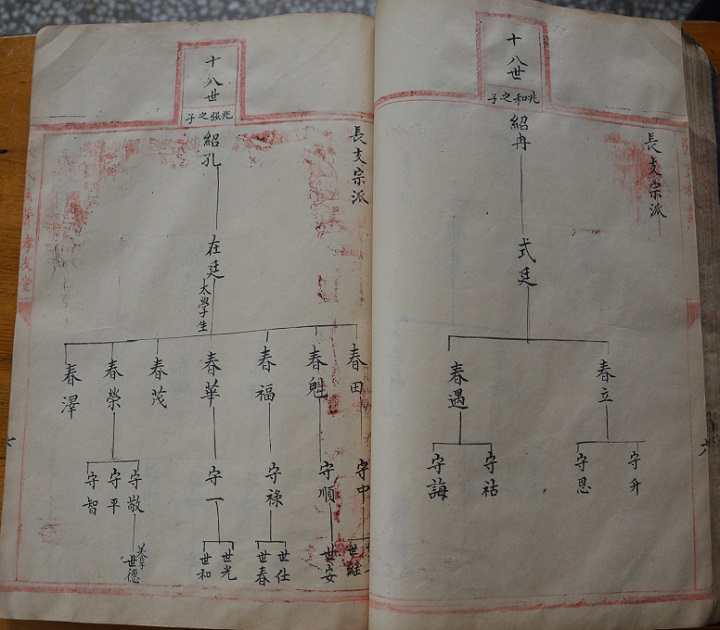 長支宗派
十八世
兆和之子
紹冉
式廷
春立
春遇
守升
守恩
守祜
守誨
長支宗派
十八世
兆強之子
紹孔
在廷
太學生
春田
春魁
春福
春華
春茂
春榮
春澤
守中
守順
守祿
守一
守敬
守平
守智
世安
世仕
世春
世光
世和
世德